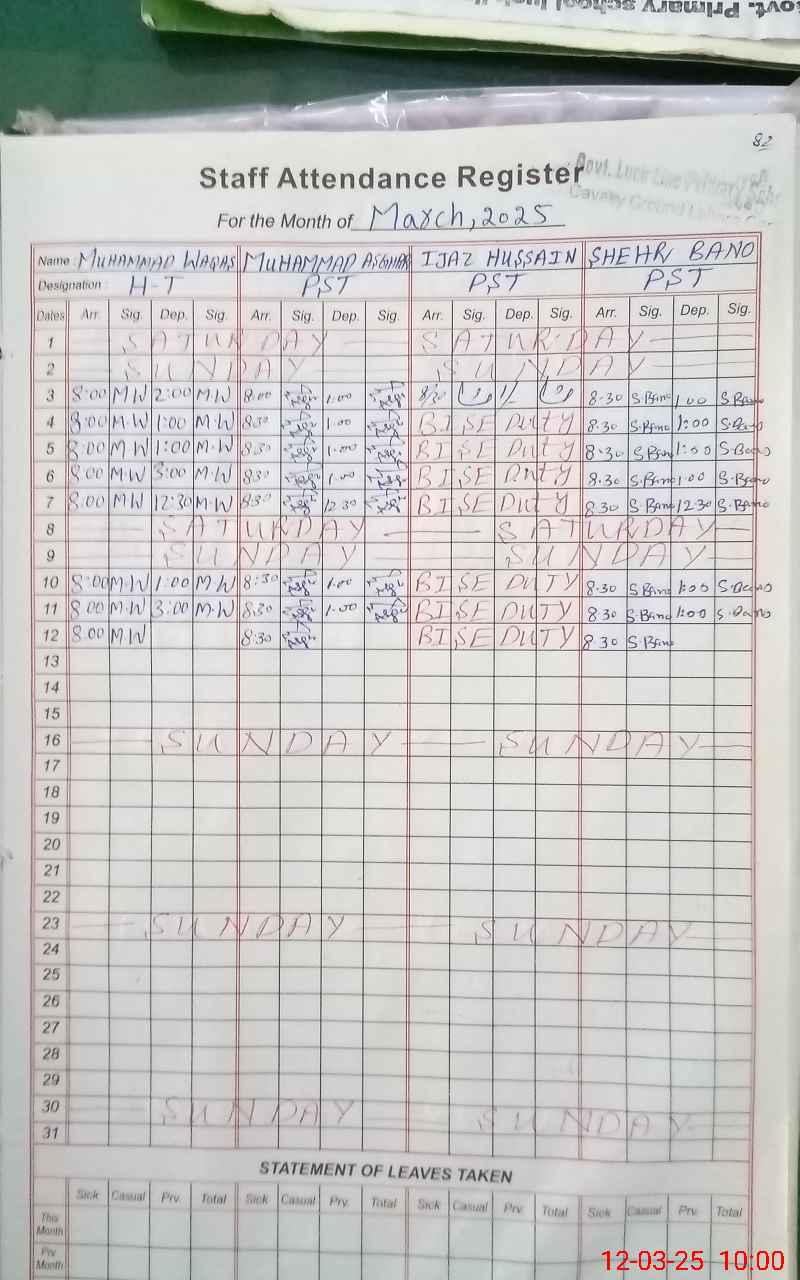 ovt. Primary school
82
Staff Attendance Register
Govt.
Cavalry Ground
For the Month of March, 2025
Name : MUHAMMAD WAQAS MUHAMMAD ASGHAR IJAZ HUSSAIN SHEHR BANO
Designation : H-T PST PST PST
Dates Arr. Sig. Dep. Sig. Arr. Sig. Dep. Sig. Arr. Sig. Dep. Sig. Arr. Sig. Dep. Sig.
1 SATURDAY SATURDAY
2 SUNDAY SUNDAY
3 8:00 MW 2:00 M.W 8.00 1.00 8/30 8.30 S.Bano 1.00 S.Bano
4 8:00 M.W 1:00 M.W 8.30 1.00 BISE DUTY 8.30 S.Bano 1:00 S.Bano
5 8:00 MW 1:00 M.W 8.30 1.00 BISE DUTY 8.30 S.Bano 1:00 S.Bano
6 8:00 MW 3:00 M.W 8.30 1.00 BISE DUTY 8.30 S.Bano 1.00 S.Bano
7 8.00 MW 12:30 M.W 8.30 12.30 BISE DUTY 8.30 S Bano 12.30 S.Bano
8 SATURDAY SATURDAY
9 SUNDAY SUNDAY
10 8:00 M.W 1:00 M.W 8:30 1.00 BISE DUTY 8.30 S.Bano 1:00 S.Bano
11 8.00 M.W 3:00 M.W 8.30 1.00 BISE DUTY 8.30 S.Bano 1:00 S.Bano
12 8.00 M.W 8:30 BISE DUTY 8.30 S.Bano
13
14
15
16 SUNDAY SUNDAY
17
18
19
20
21
22
23 SUNDAY SUNDAY
24
25
26
27
28
29
30 SUNDAY SUNDAY
31
STATEMENT OF LEAVES TAKEN
Sick Casual Prv. Total Sick Casual Prv. Total Sick Casual Prv. Total Sick Casual Prv. Total
This Month
Prv Month
12-03-25 10:00